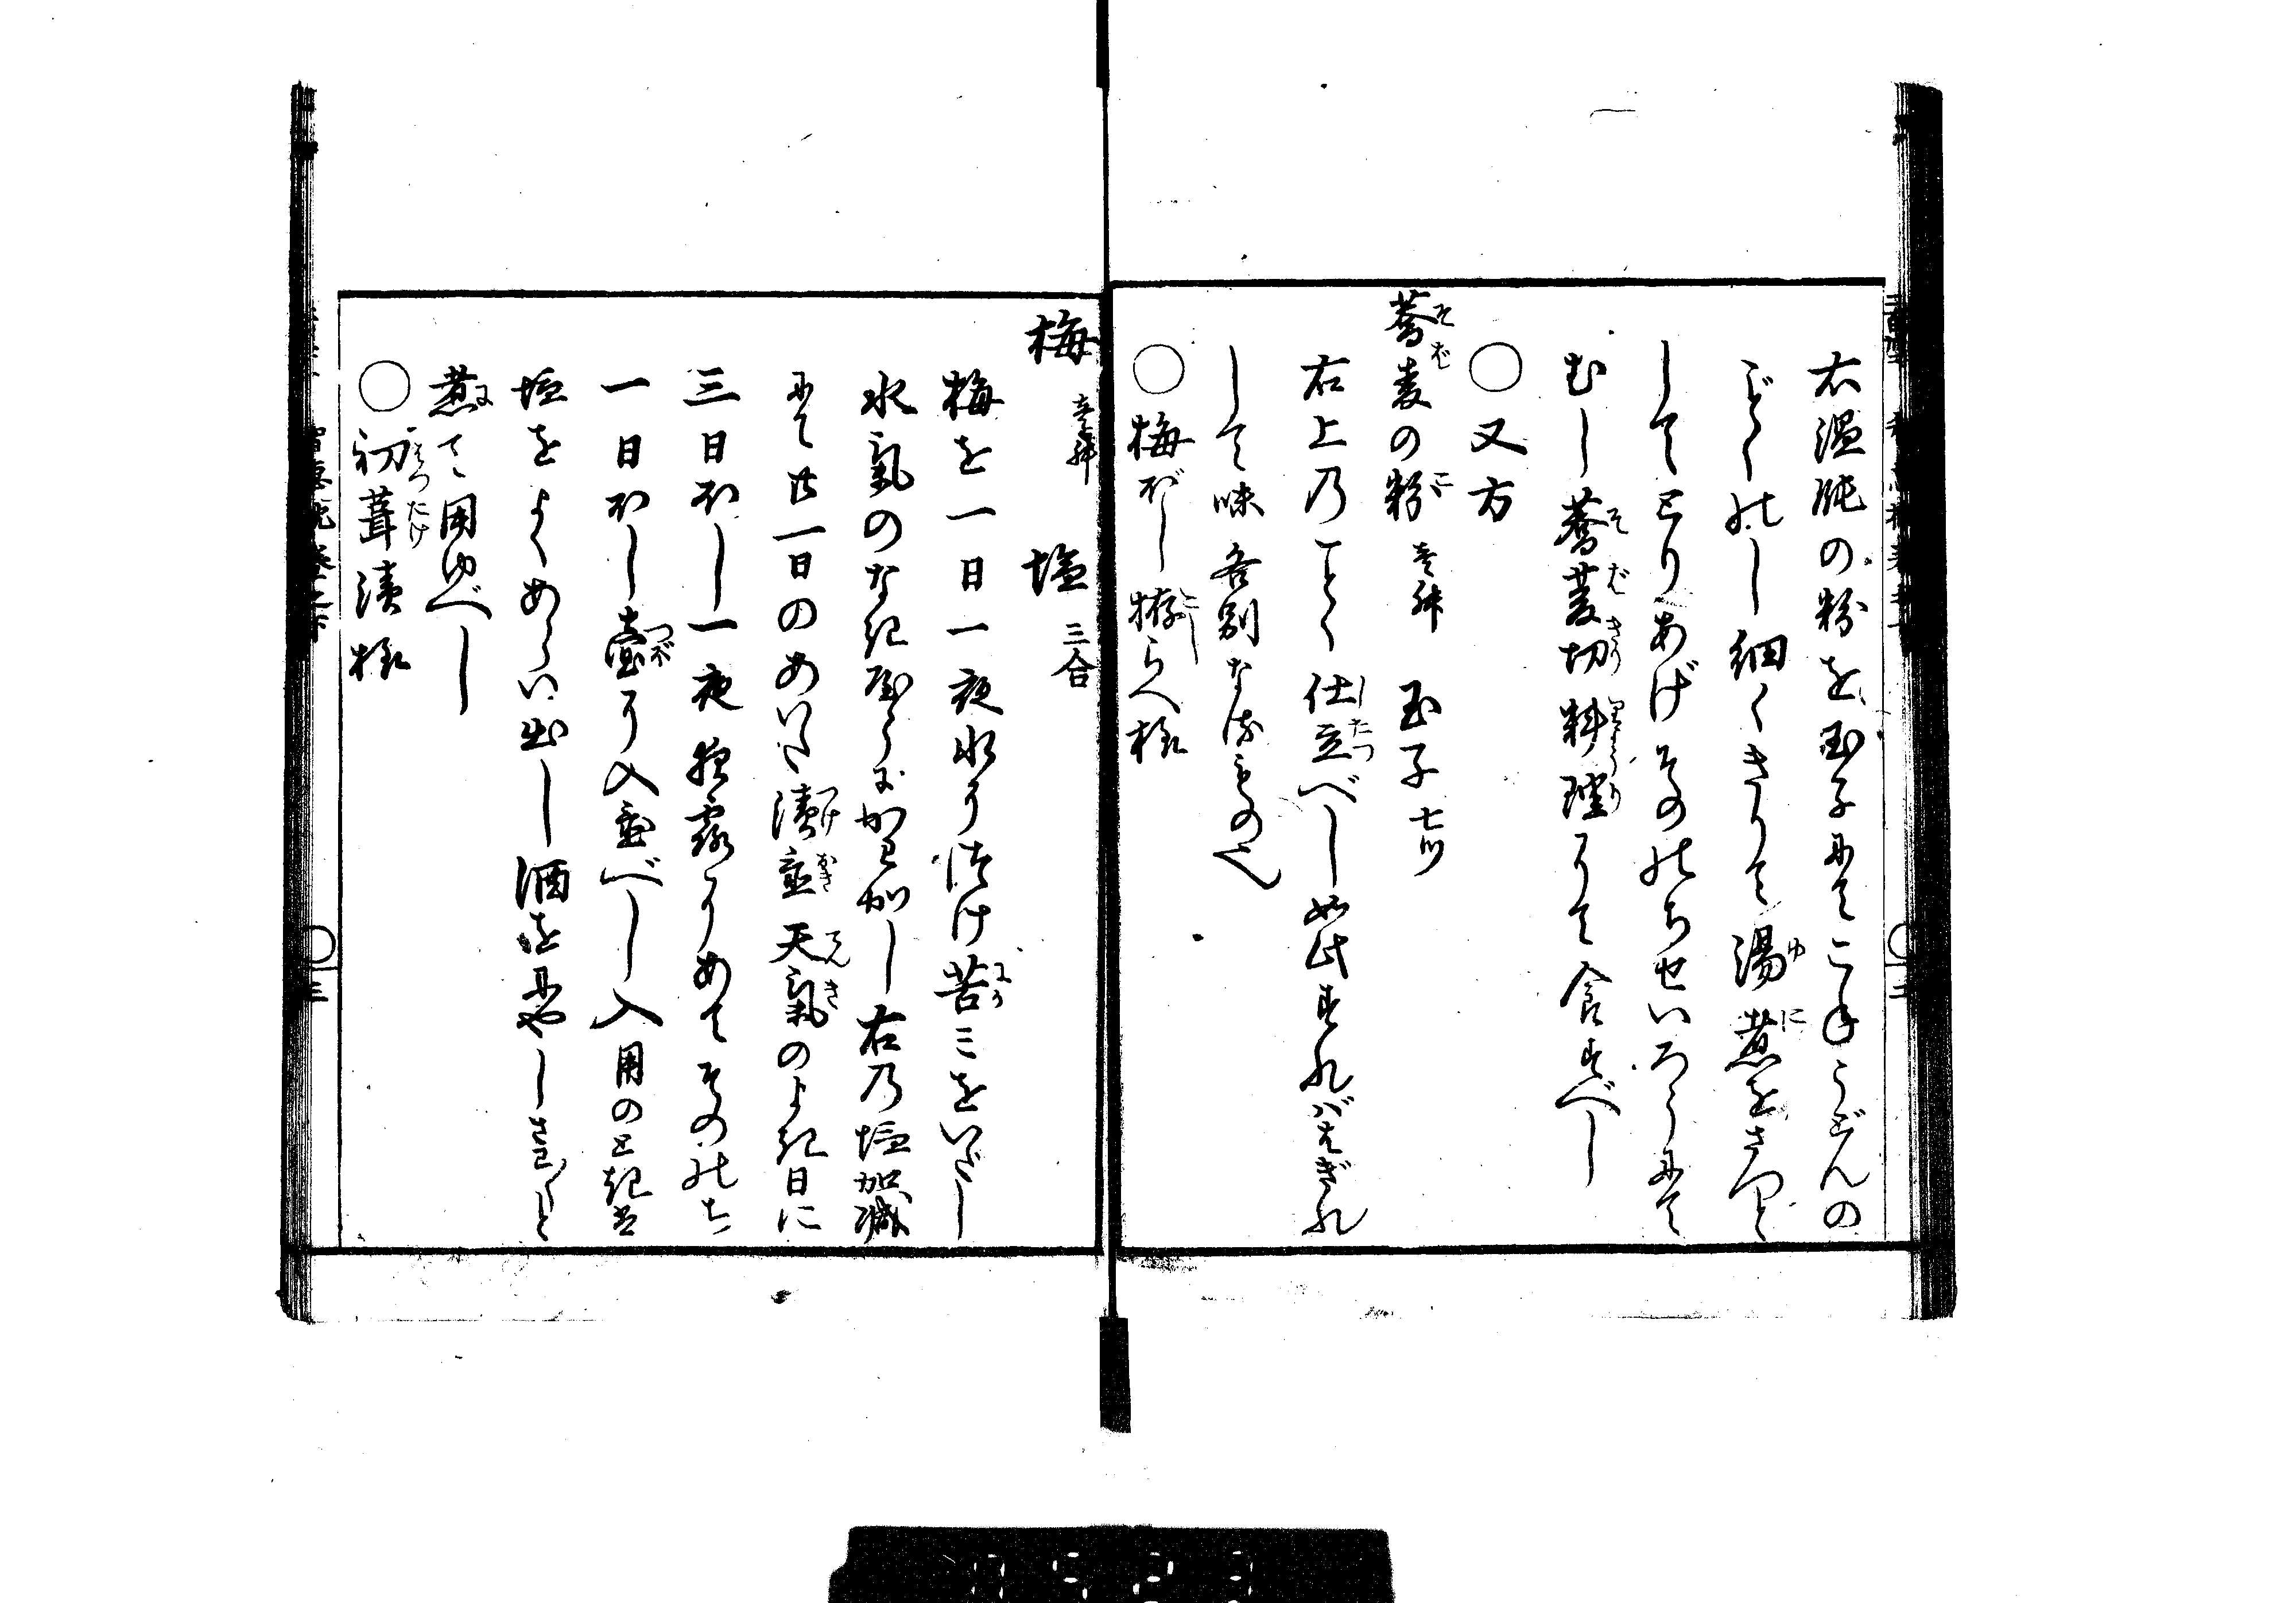 右温飩の粉を玉子にてこねうどんの
ごとくのし細くきりて湯煮をさつと
してとりあげそのゝちせいろうにて
むし蕎麦切料理にて食すべし
○又方
蕎麦の粉 壱升 玉子 七ツ
右上のことく仕立べし如此すればはぎれ
して味各別なるもの也
○梅ぼし拵らへ様
梅 壱升 塩 三合
梅を一日一夜水につけ苦ミをいだし
水氣のなきやうにかわかし右の塩加減
にて廿一日のあいだ漬置天氣のよき日に
三日ほし一夜夜露にあてそののち
一日ほし壺に入置べし入用のとき
塩をよくあらい出し酒をひやしさわ〳〵と
煮て用ゆべし
○初茸漬様